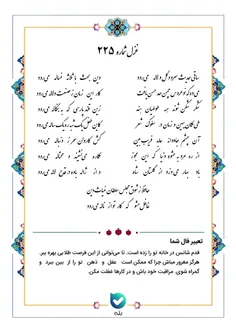 غزل شماره ۲۲۵
ساقی حدیث سرو و گل و لاله می‌رود
وین بحث با ثلاثهٔ غساله می‌رود
می ده که نوعروس چمن حد حسن یافت
کار این زمان ز صنعت دلاله می‌رود
شکرشکن شوند همه طوطیان هند
زین قند پارسی که به بنگاله می‌رود
طی مکان ببین و زمان در سلوک شعر
کاین طفل یک شبه ره یک ساله می‌رود
آن چشم جادوانه عابدفریب بین
کش کاروان سحر ز دنباله می‌رود
از ره مرو به عشوه دنیا که این عجوز
مکاره می‌نشیند و محتاله می‌رود
باد بهار می‌وزد از گلستان شاه
و از ژاله باده در قدح لاله می‌رود
حافظ ز شوق مجلس سلطان غیاث دین
غافل مشو که کار تو از ناله می‌رود
تعبیر فال شما
قدم شانس در خانه تو را زده است. تا می‌توانی از این فرصت طلایی بهره ببر.
هرگز مغرور مباش چرا که ممکن است عقل و ذهن تو را از بین ببرد و
گمراه شوی. مراقبت خود باش و در کارها غفلت مکن.
بله